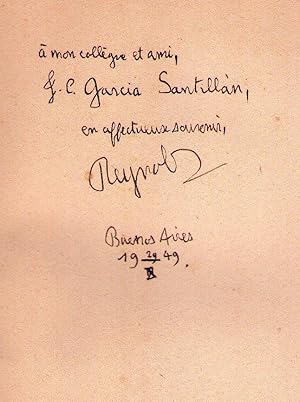 à mon collègue et ami,
J. C. Garcia Santillàn,
en affectueux souvenir,
Reynold
Buenos Aires
19 29 49